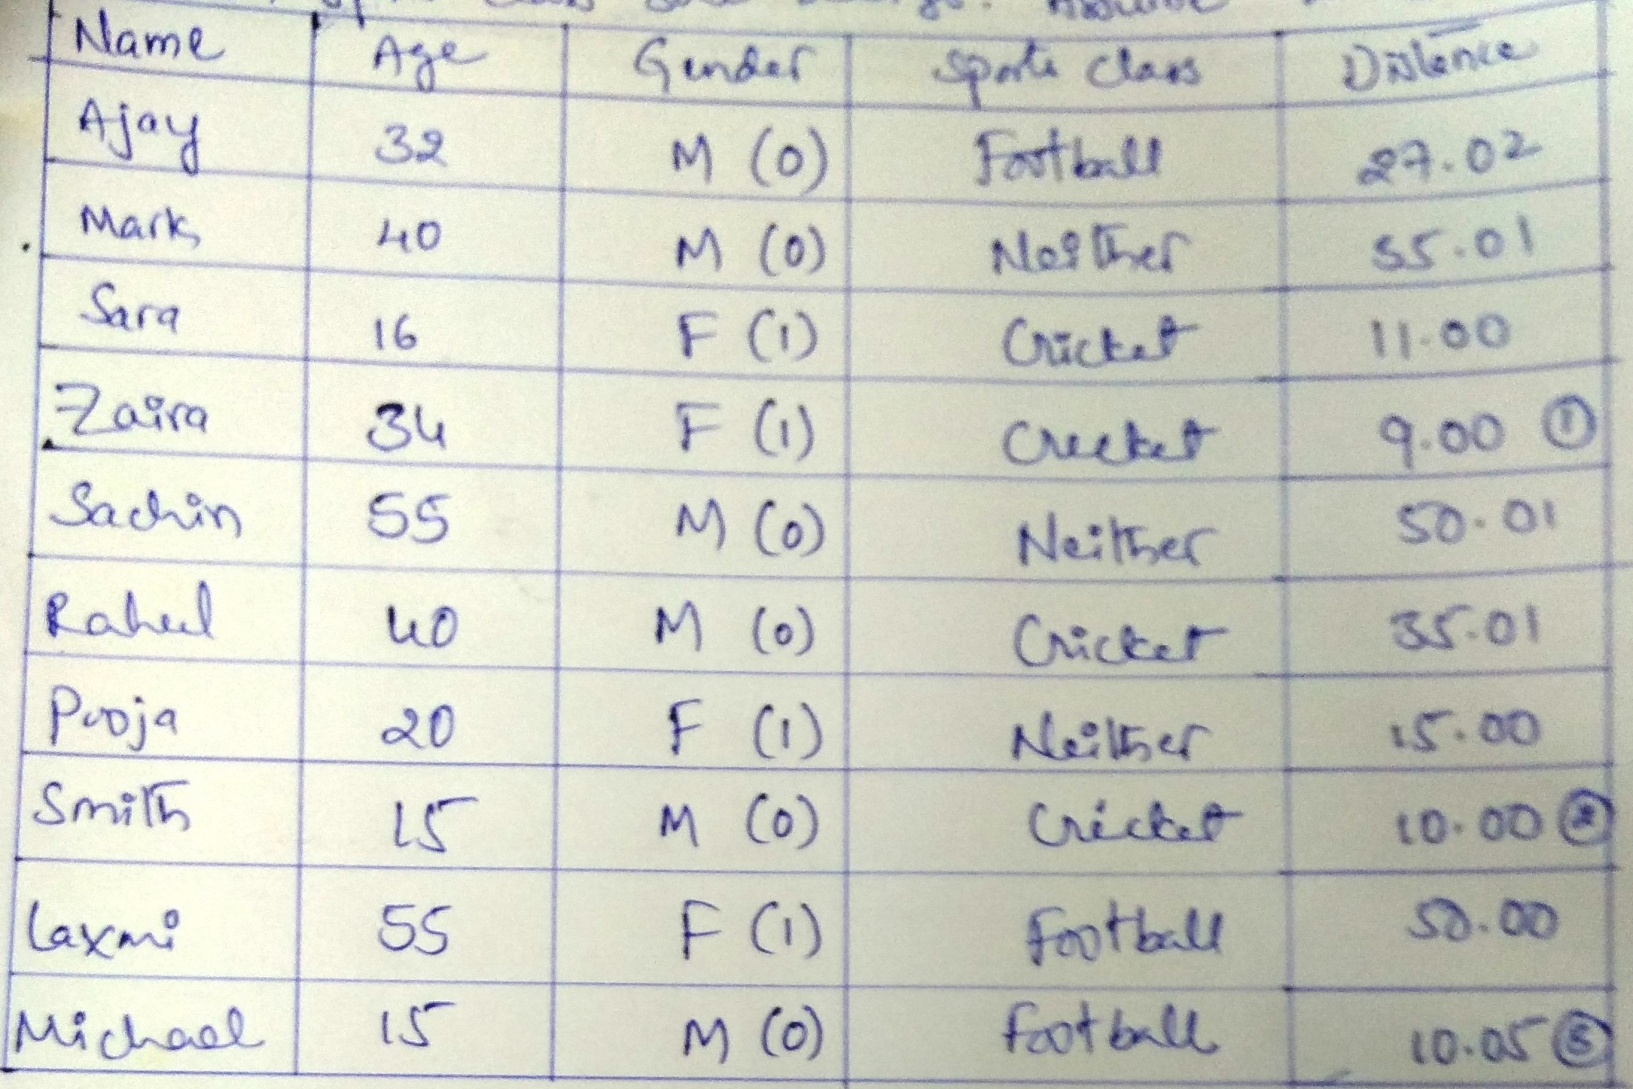 Name Age Gender Sports Class Distance
Ajay 32 M (0) Football 27.02
Mark 40 M (0) Neither 35.01
Sara 16 F (1) Cricket 11.00
Zaira 34 F (1) Cricket 9.00 ①
Sachin 55 M (0) Neither 50.01
Rahul 40 M (0) Cricket 35.01
Pooja 20 F (1) Neither 15.00
Smith 15 M (0) Cricket 10.00 ②
Laxmi 55 F (1) Football 50.00
Michael 15 M (0) Football 10.05 ③